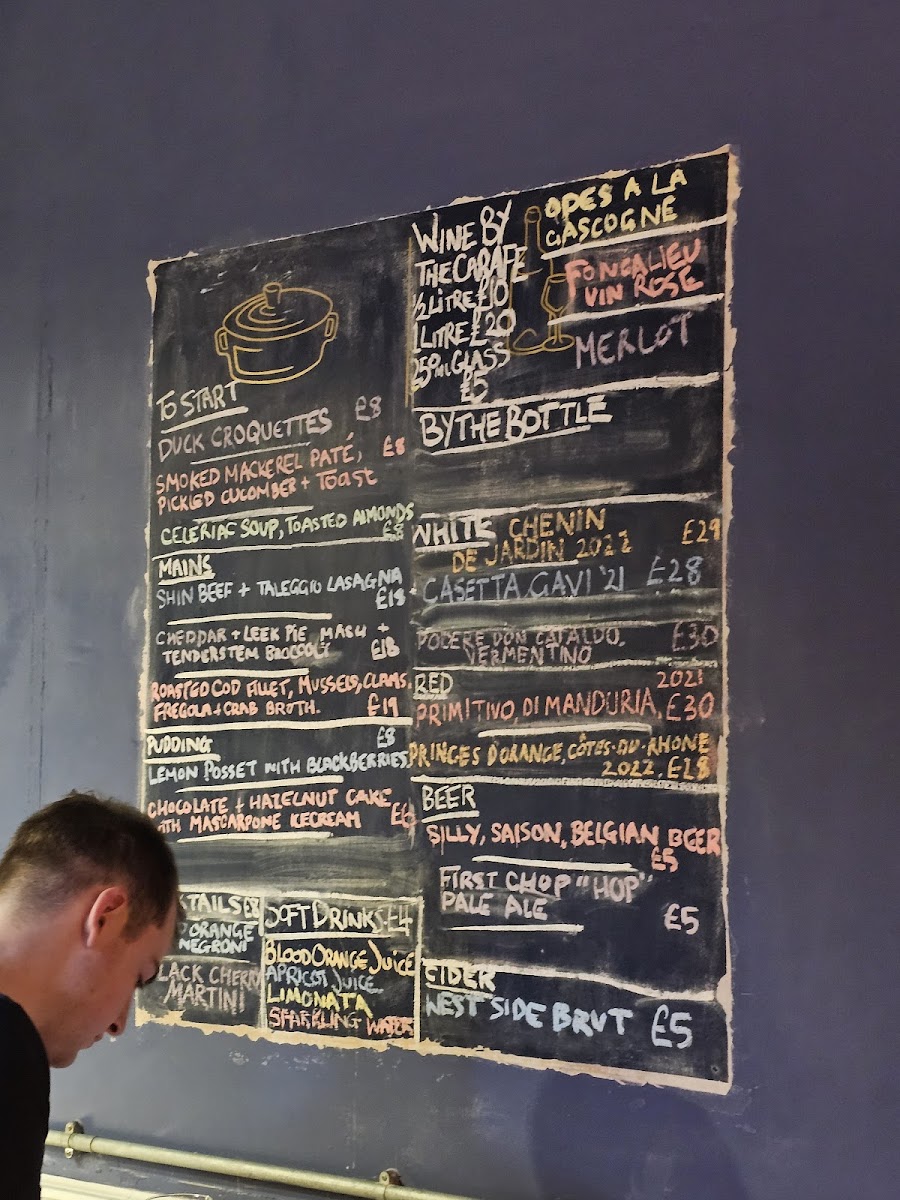 TO START
DUCK CROQUETTES £8
SMOKED MACKEREL PATÉ, £8
PICKLED CUCOMBER + TOAST
CELERIAC SOUP, TOASTED ALMONDS
£8
MAINS
SHIN BEEF + TALEGGIO LASAGNA
£18
CHEDDAR + LEEK PIE, MASH +
TENDERSTEM BROCCOLI £18
ROASTED COD FILLET, MUSSELS, CLAMS,
FREGOLA + CRAB BROTH. £19
PUDDING £8
LEMON POSSET WITH BLACKBERRIES
CHOCOLATE + HAZELNUT CAKE
WITH MASCARPONE ICECREAM £6
KTAILS £8
ORANGE
NEGRONI
LACK CHERRY
MARTINI
SOFT DRINKS £4
BLOOD ORANGE JUICE
APRICOT JUICE
LIMONATA
SPARKLING WATER
WINE BY
THE CARAFE
1/2 LITRE £10
1 LITRE £20
250ML GLASS
£5
OPES A LA
GASCOGNE
FONCALIEU
VIN ROSE
MERLOT
BY THE BOTTLE
WHITE CHENIN £29
DE JARDIN 2022
CASETTA GAVI '21 £28
PODERE DON CATALDO, £30
VERMENTINO
RED 2021
PRIMITIVO, DI MANDURIA, £30
PRINCES D'ORANGE, CÔTES-DU-RHONE
2022, £28
BEER
SILLY, SAISON, BELGIAN BEER
£5
FIRST CHOP "HOP"
PALE ALE £5
CIDER
WEST SIDE BRUT £5